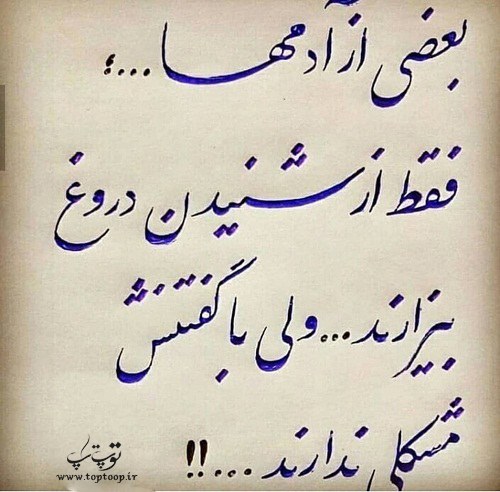 بعضی از آدمها...؛
فقط از شنیدن دروغ
بیزارند...ولی با گفتنش
مشکلی ندارند...!!
توپ تاپ
www.toptoop.ir